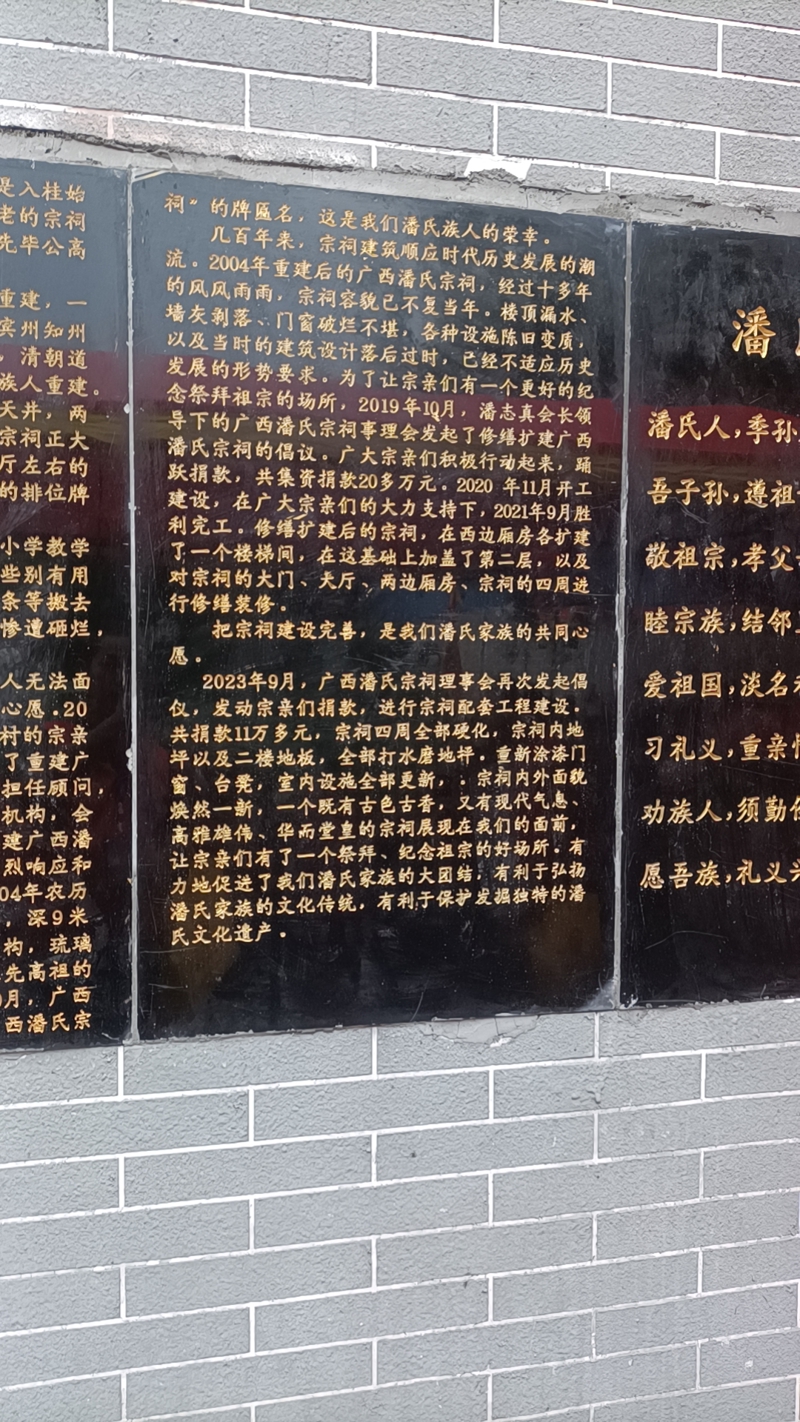 是入桂始
老的宗祠
先毕公高
重建，一
宾州知州
，清朝道
族人重建。
天井，两
宗祠正大
厅左右的
的排位牌
小学教学
些别有用
条等搬去
惨遭砸烂，
人无法面
心愿.20
村的宗亲
了重建广
担任顾问，
机构，会
建广西潘
烈响应和
04年农历
，深9米
构，琉璃
先高祖的
月，广西
西潘氏宗
祠”的牌匾名，这是我们潘氏族人的荣幸。
几百年来，宗祠建筑顺应时代历史发展的潮
流。2004年重建后的广西潘氏宗祠，经过十多年
的风风雨雨，宗祠容貌已不复当年。楼顶漏水、
墙灰剥落、门窗破烂不堪，各种设施陈旧变质，
以及当时的建筑设计落后过时，已经不适应历史
发展的形势要求。为了让宗亲们有一个更好的纪
念祭拜祖宗的场所，2019年10月，潘志真会长领
导下的广西潘氏宗祠事理会发起了修缮扩建广西
潘氏宗祠的倡议。广大宗亲们积极行动起来，踊
跃捐款，共集资捐款20多万元。2020 年11月开工
建设，在广大宗亲们的大力支持下，2021年9月胜
利完工。修缮扩建后的宗祠，在西边厢房各扩建
了一个楼梯间，在这基础上加盖了第二层，以及
对宗祠的大门、大厅、两边厢房、宗祠的四周进
行修缮装修。
把宗祠建设完善，是我们潘氏家族的共同心
愿。
2023年9月，广西潘氏宗祠理事会再次发起倡
仪，发动宗亲们捐款，进行宗祠配套工程建设。
共捐款11万多元，宗祠四周全部硬化，宗祠内地
坪以及二楼地板，全部打水磨地坪。重新涂漆门
窗、台凳，室内设施全部更新，．宗祠内外面貌
焕然一新，一个既有古色古香，又有现代气息、
高雅雄伟、华而堂皇的宗祠展现在我们的面前，
让宗亲们有了一个祭拜、纪念祖宗的好场所。有
力地促进了我们潘氏家族的大团结，有利于弘扬
潘氏家族的文化传统，有利于保护发掘独特的潘
氏文化遗产。
潘
潘氏人，季孙
吾子孙，遵祖
敬祖宗，孝父
睦宗族，结邻
爱祖国，淡名
习礼义，重亲
劝族人，须勤
愿吾族，礼义